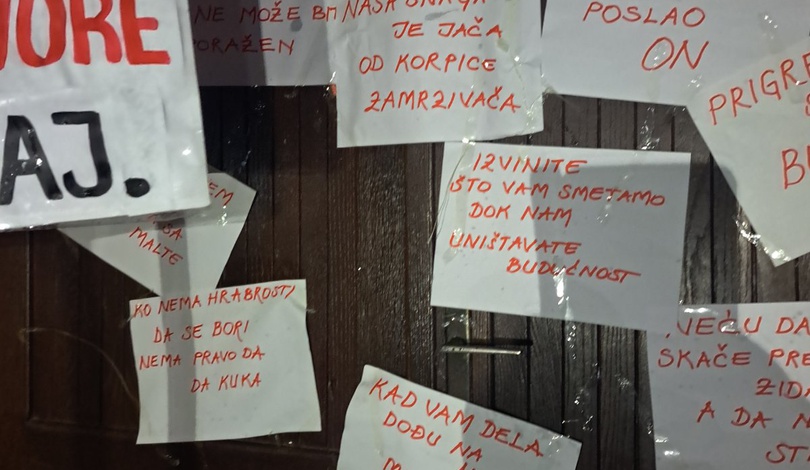 AJ.
NE MOŽE
JE JAČA
OD KORPICE
ZAMRZIVAČA
POSLAO
ON
MALTE
IZVINITE
ŠTO VAM SMETAMO
DOK NAM
UNIŠTAVATE
BUDUĆNOST
KO NEMA HRABROSTI
DA SE BORI
NEMA PRAVO DA
DA KUKA
KAD VAM DELA
DOĐU NA
NEĆU DA
SKAČE PRE
ZID
A DA N